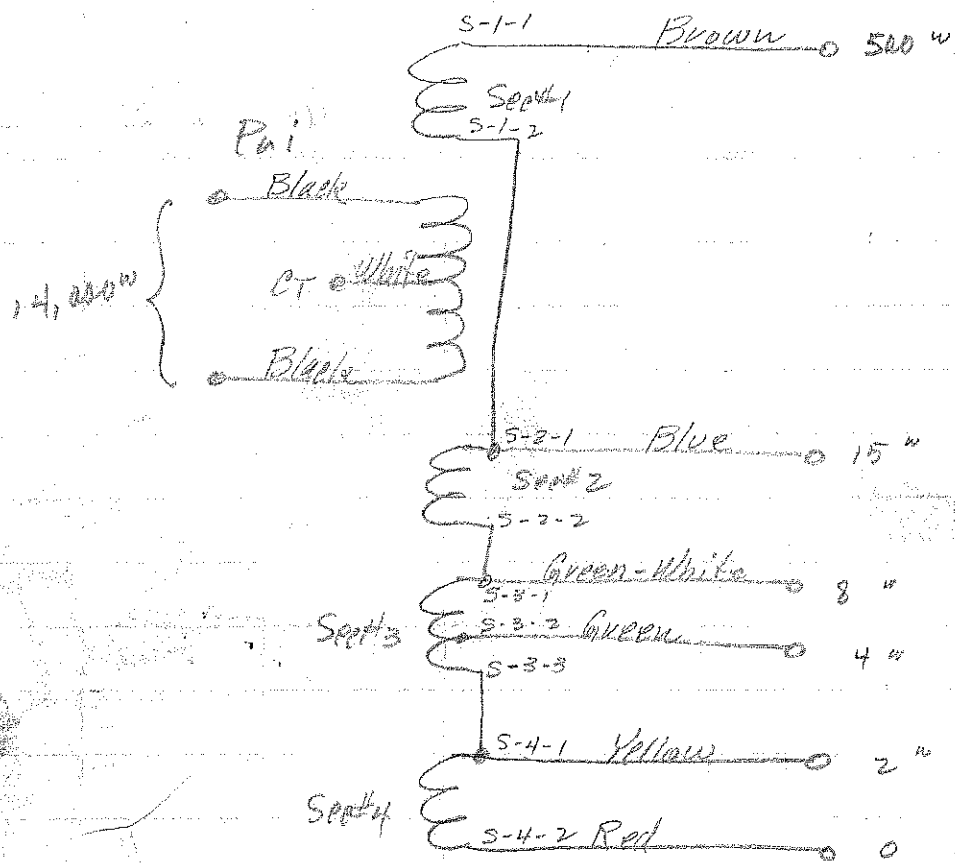 S-1-1 Brown 500 "
Sec#1
S-1-2
Pri
Black
CT White
Black
S-2-1 Blue 15 "
Sec#2
S-2-2
Green-White 8 "
S-3-1
Sec#3 S-3-2 Green 4 "
S-3-3
S-4-1 Yellow 2 "
Sec#4
S-4-2 Red 0